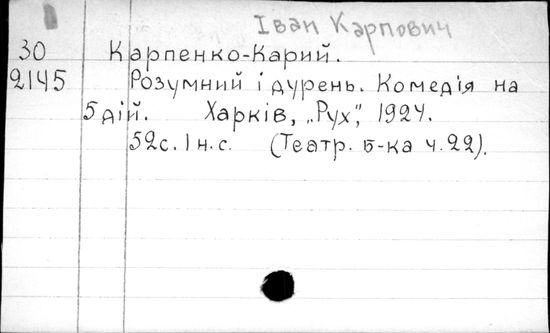 Іван Карпович
30 Карпенко-Карий.
2145 Розумний і дурень. Комедія на
5 дій. Харків, „Рух", 1924.
52с. 1 н.с. (Театр. б-ка ч.22).